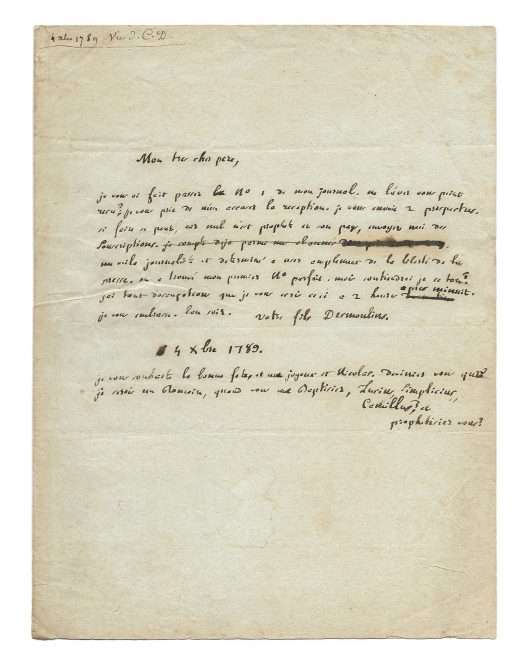 4 xbre 1789 Vu J. C. D.
Mon tres cher pere,
je vous ai fait passer le No 1 de mon journal. ne l'avez vous point
recu? je vous prie de m'en accuser la reception. je vous envoie 2 prospectus.
si faire se peut, car nul n'est prophete en son pays, envoyez moi des
souscriptions. je compte deja parmi me abonnes
me voila journaliste et determiné a user amplement de la liberté de la
presse. on a trouvé mon premier No parfait. mais soutiendrai je ce ton?
j'ai tant d'occupations que je vous ecris ceci a 2 heures apres minuit.
je vous embrasse. bon soir. votre fils Desmoulins.
4 Xbre 1789.
je vous souhaite la bonne fete, et joyeux st Nicolas. deviniez vous que
je serois un Romain, quand vous me baptisiez, Lucius Simplicius,
Camillus? et
prophetisiez vous?